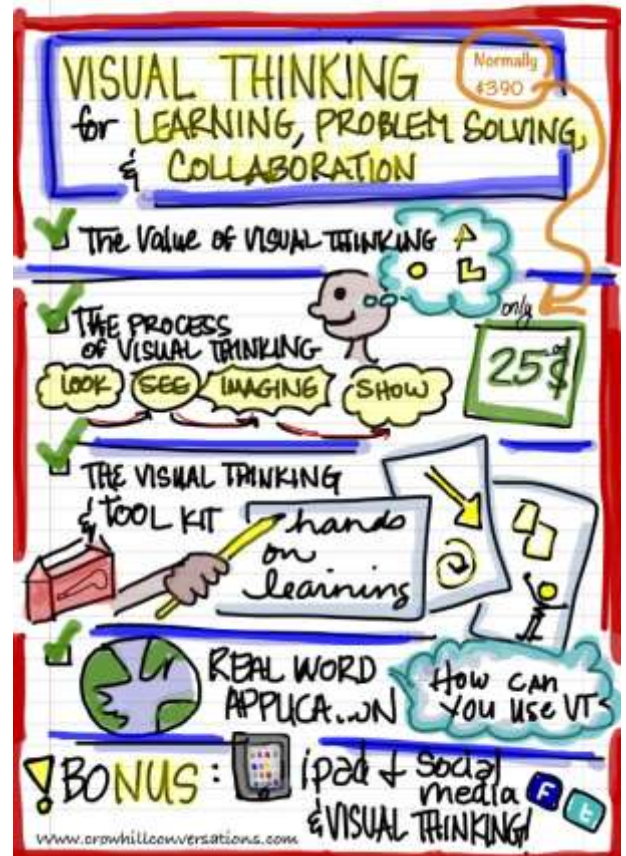 VISUAL THINKING
Normally
$390
for LEARNING, PROBLEM SOLVING,
& COLLABORATION
The Value of VISUAL THINKING
THE PROCESS
OF VISUAL THINKING
only
25$
LOOK SEE IMAGING SHOW
THE VISUAL THINKING
& TOOL KIT
hands
on
learning
REAL WORD
APPLICA...ON
HOW CAN
YOU USE VT
BONUS:
ipad + Social
media
F t
& VISUAL THINKING!
www.crowhillconversations.com